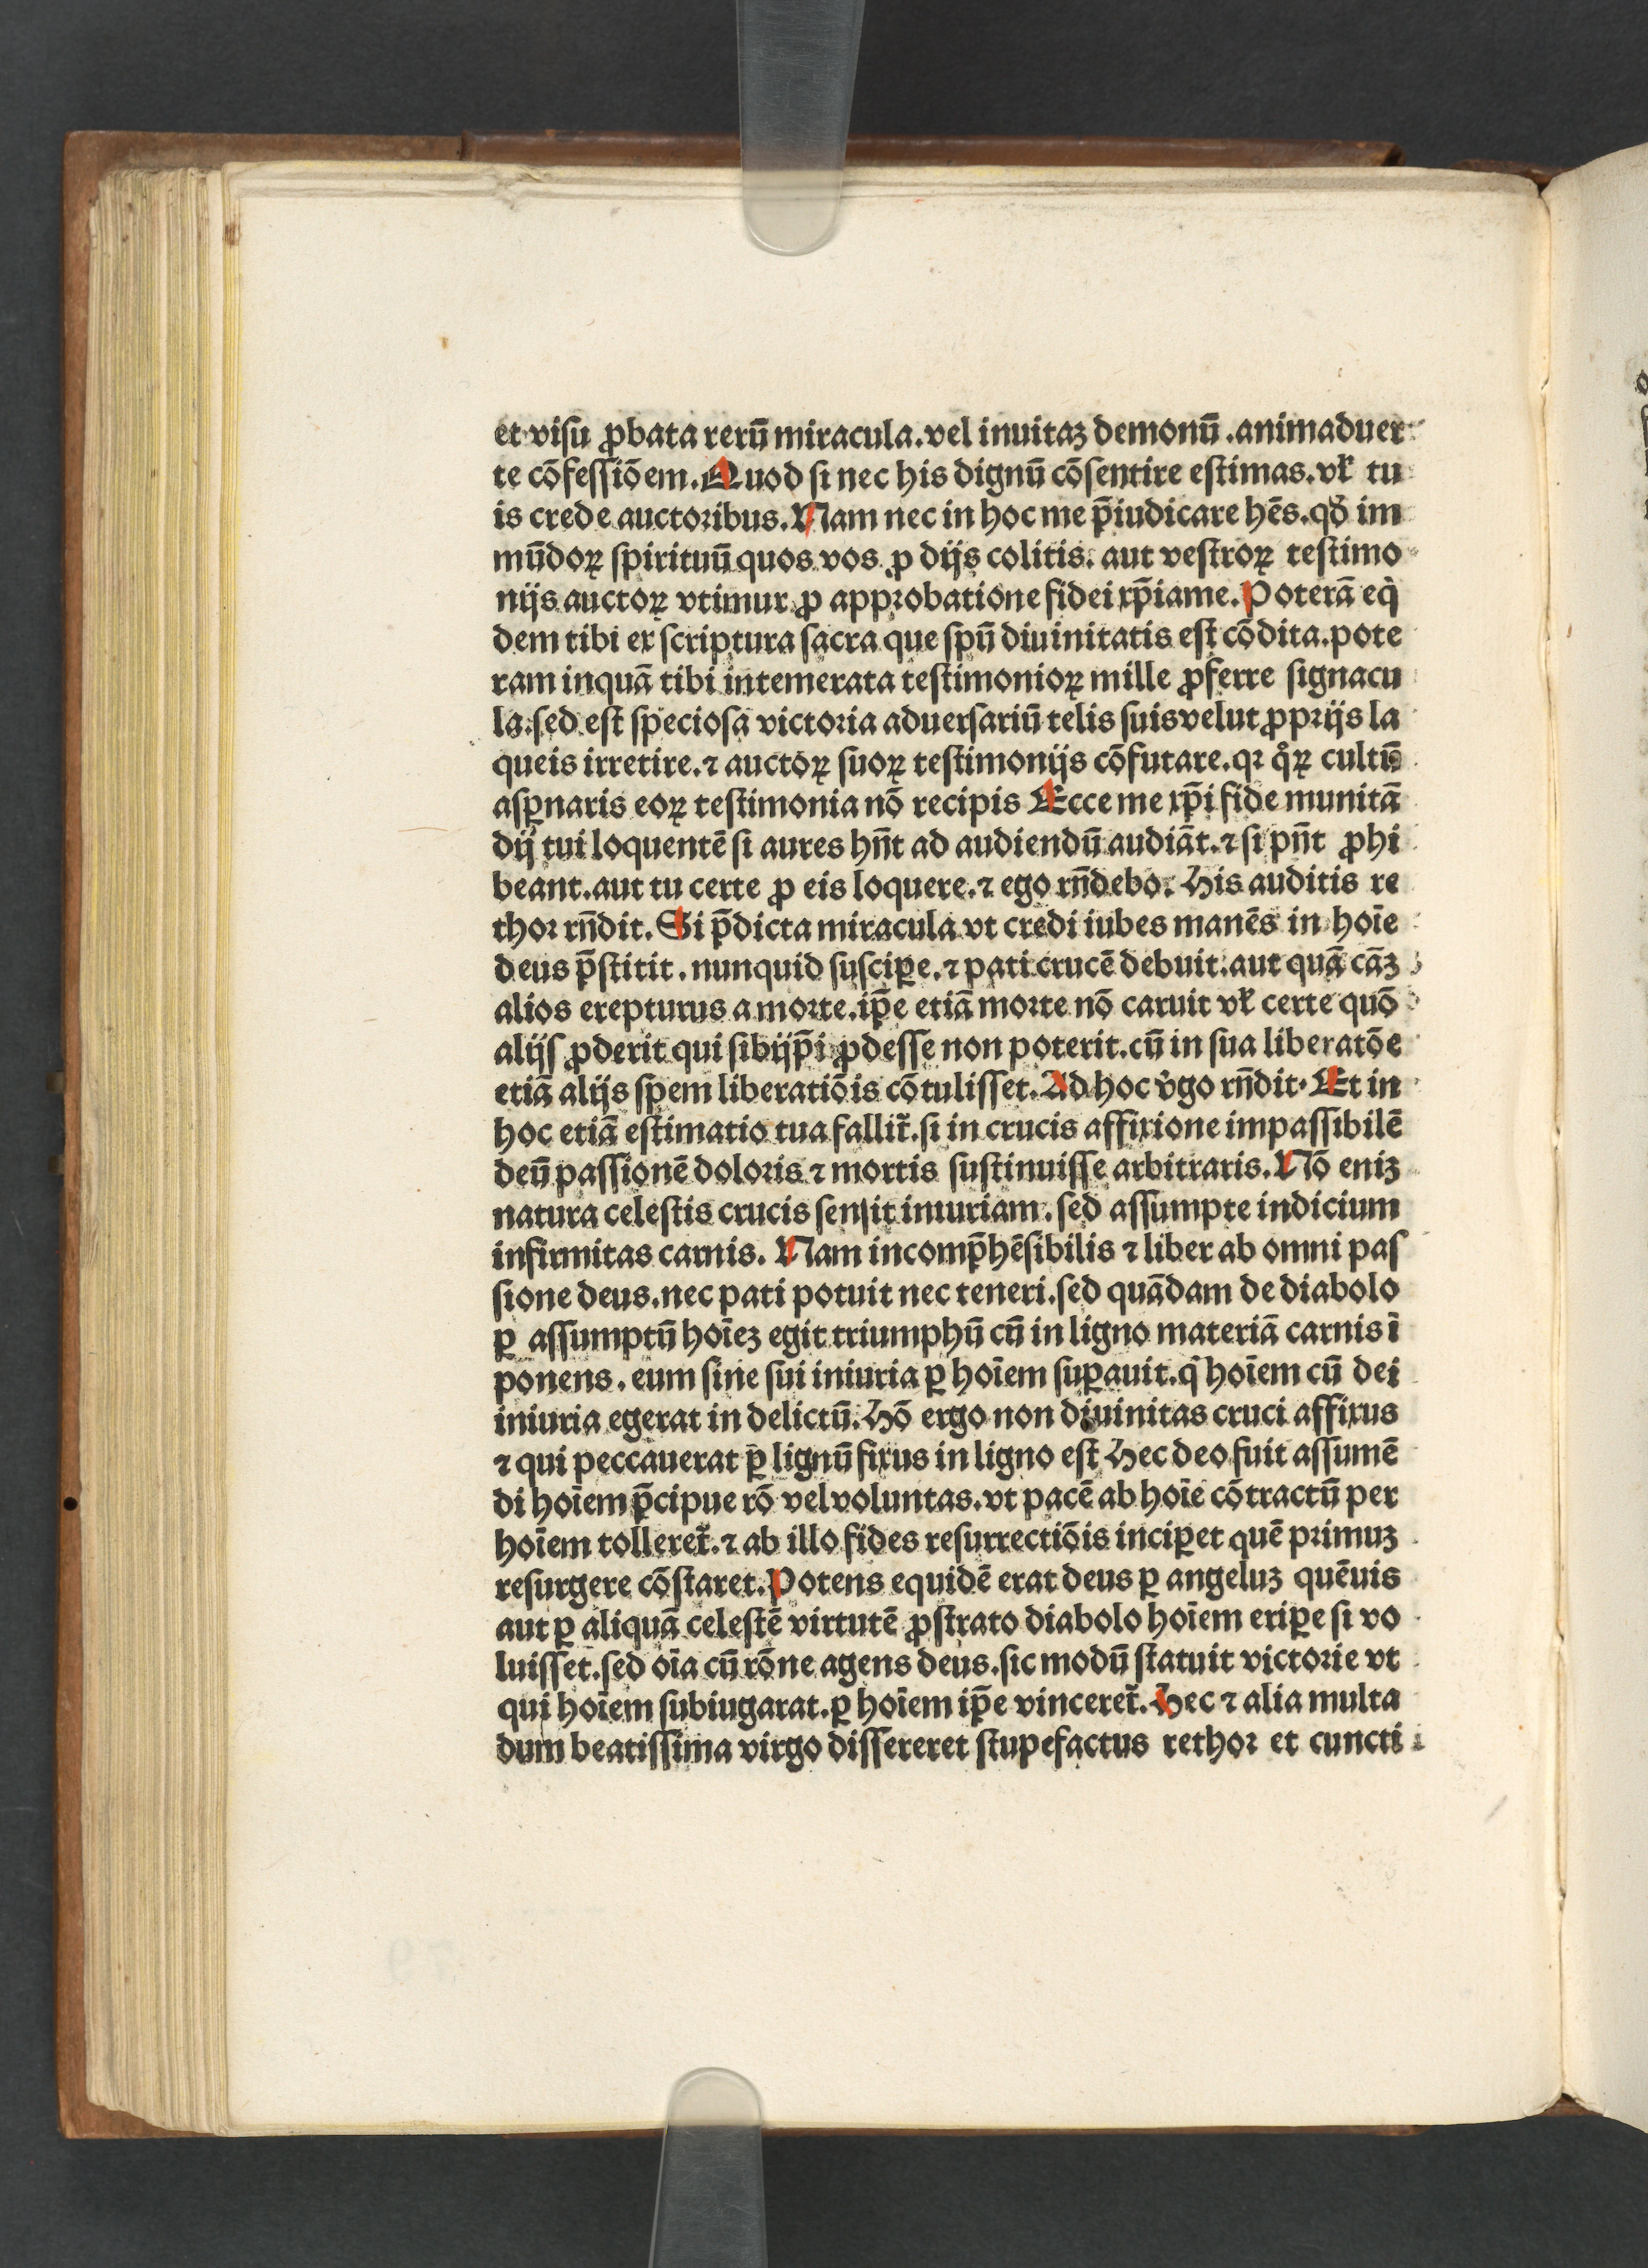 et visu ꝓbata rerū miracula.vel inuitaꝫ demonū.animaduer
te cōfessiōem.Quod si nec his dignū cōsentire estimas.vꝉ tu
is crede auctoribus.Nam nec in hoc me p̄iudicare hēs.qđ im
mūdoꝝ spirituū quos vos ꝓ dijs colitis. aut vestroꝝ testimo
nijs auctoꝝ vtimur ꝓ approbatione fidei xp̄iame.Poterā eq̇
dem tibi ex scriptura sacra que spū diuinitatis est cōdita.pote
ram inquā tibi intemerata testimonioꝝ mille ꝓferre signacu
la.sed est speciosa victoria aduersariū telis suis velut ꝓprijs la
queis irretire.⁊ auctoꝝ suoꝝ testimonijs cōfutare.qꝛ qͦꝝ cultū
asꝑnaris eoꝝ testimonia nō recipis Ecce me xp̄i fide munitā
dij tui loquentē si aures hn̄t ad audiendū audiāt.⁊ si pn̄t ꝓhi
beant.aut tu certe ꝓ eis loquere.⁊ ego rn̄debo. His auditis re
thor rn̄dit.Si p̄dicta miracula vt credi iubes manēs in hoīe
deus p̄stitit.nunquid suscipe.⁊ pati crucē debuit.aut quā cāꝫ
alios erepturus a morte.ip̄e etiā morte nō caruit vꝉ certe quō
alijs ꝓderit qui sibijp̄i ꝓdesse non poterit.cū in sua liberatōe
etiā alijs spem liberatiōis cōtulisset.Ad hoc v̓go rn̄dit.Et in
hoc etiā estimatio tua fallit̄.si in crucis affixione impassibilē
deū passionē doloris ⁊ mortis sustinuisse arbitraris.Nō eniꝫ
natura celestis crucis sensit iniuriam.sed assumpte indicium
infirmitas carnis. Nam incomp̄hēsibilis ⁊ liber ab omni pas
sione deus.nec pati potuit nec teneri.sed quādam de diabolo
ꝑ assumptū hoīeꝫ egit triumphū cū in ligno materiā carnis ī
ponens.eum sine sui iniuria ꝑ hoīem suꝑauit.q̇ hoīem cū dei
iniuria egerat in delictū.Hō ergo non diuinitas cruci affixus
⁊ qui peccauerat ꝑ lignū fixus in ligno est Hec deo fuit assumē
di hoīem p̄cipue rō vel voluntas.vt pacē ab hoīe cōtractū per
hoīem tolleret̄.⁊ ab illo fides resurrectiōis inciꝑet quē primuꝫ
resurgere cōstaret.Potens equidē erat deus ꝑ angeluꝫ quēuis
aut ꝑ aliquā celestē virtutē ꝓstrato diabolo hoīem eriꝑe si vo
luisset.sed oīa cū rōne agens deus.sic modū statuit victorie vt
qui hoīem subiugarat.ꝑ hoīem ip̄e vinceret̄.Hec ⁊ alia multa
dum beatissima virgo dissereret stupefactus rethor et cuncti